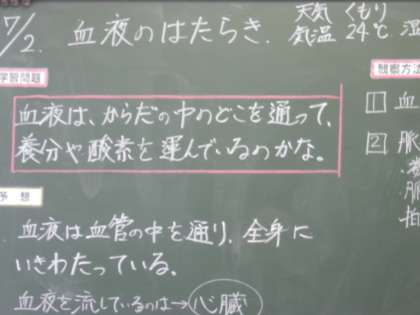 7/2. 血液のはたらき.
天気 くもり
気温 24℃
学習問題
血液は、からだの中のどこを通って、
養分や酸素を運んでいるのかな。
予想
血液は血管の中を通り、全身に
いきわたっている。
血液を流しているのは→心臓
観察方法
1 血
2 脈